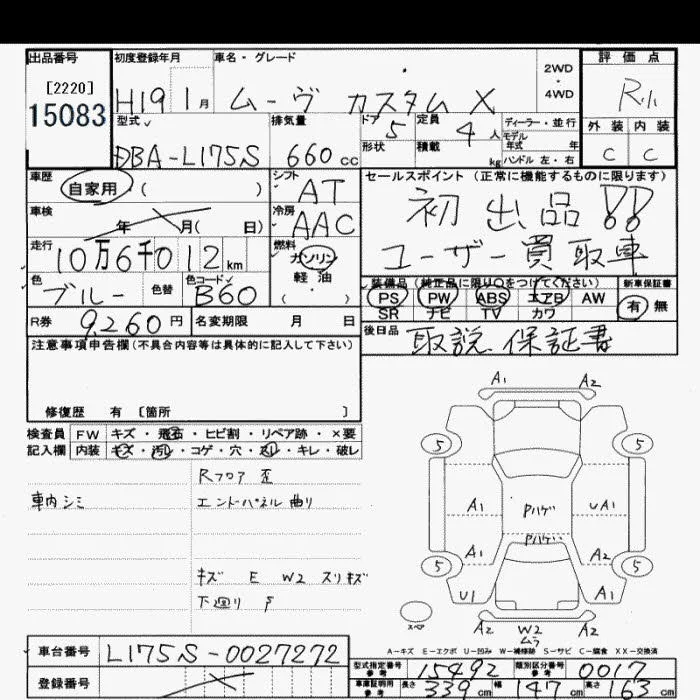 出品番号
[2220]
15083
初度登録年月
H19 1月
車名・グレード
ムーヴ カスタム X
2WD
・
4WD
評価点
R
外装 内装
C C
型式
DBA-L175S
排気量
660cc
ドア
5
形状
定員
4人
積載 kg
ディーラー・並行
モデル
年式 年
ハンドル 左・右
車歴
自家用・( )
シフト
AT
車検
年 月( 日)
冷房
AAC
走行
10万6千012km
燃料
ガソリン
軽油
( )
色
ブルー
色替
色コード
B60
R券 9,260円
名変期限 月 日
セールスポイント(正常に機能するものに限ります)
初出品!!
ユーザー買取車
装備品(純正品に限り○をつけてください)
PS PW ABS エアB AW
SR ナビ TV カワ
新車保証書
有・無
後日品
取説 保証書
注意事項申告欄(不具合内容等は具体的に記入して下さい)
修復歴 有 〔箇所 〕
検査員 FW キズ・飛石・ヒビ割・リペア跡・×要
記入欄 内装 キズ・汚れ・コゲ・穴・スレ・キレ・破レ
車内シミ
Rフロア 歪
エンドパネル 曲り
キズ E W2 スリキズ
下廻り
A1 A2
5 5
A1 Pハゲ UA1
Pハゲ
A1 A2
5 5
U1 A1
スペア
A2 W2 A2
ムラ
A-キズ E-エクボ U-凹み W-補修跡 S-サビ C-腐食 XX-交換済
車台番号 L175S-0027272
登録番号
型式指定番号 参考 15492 類別区分番号 参考 0017
車庫証明用 参考 長さ 339cm 幅 147cm 高さ 163cm